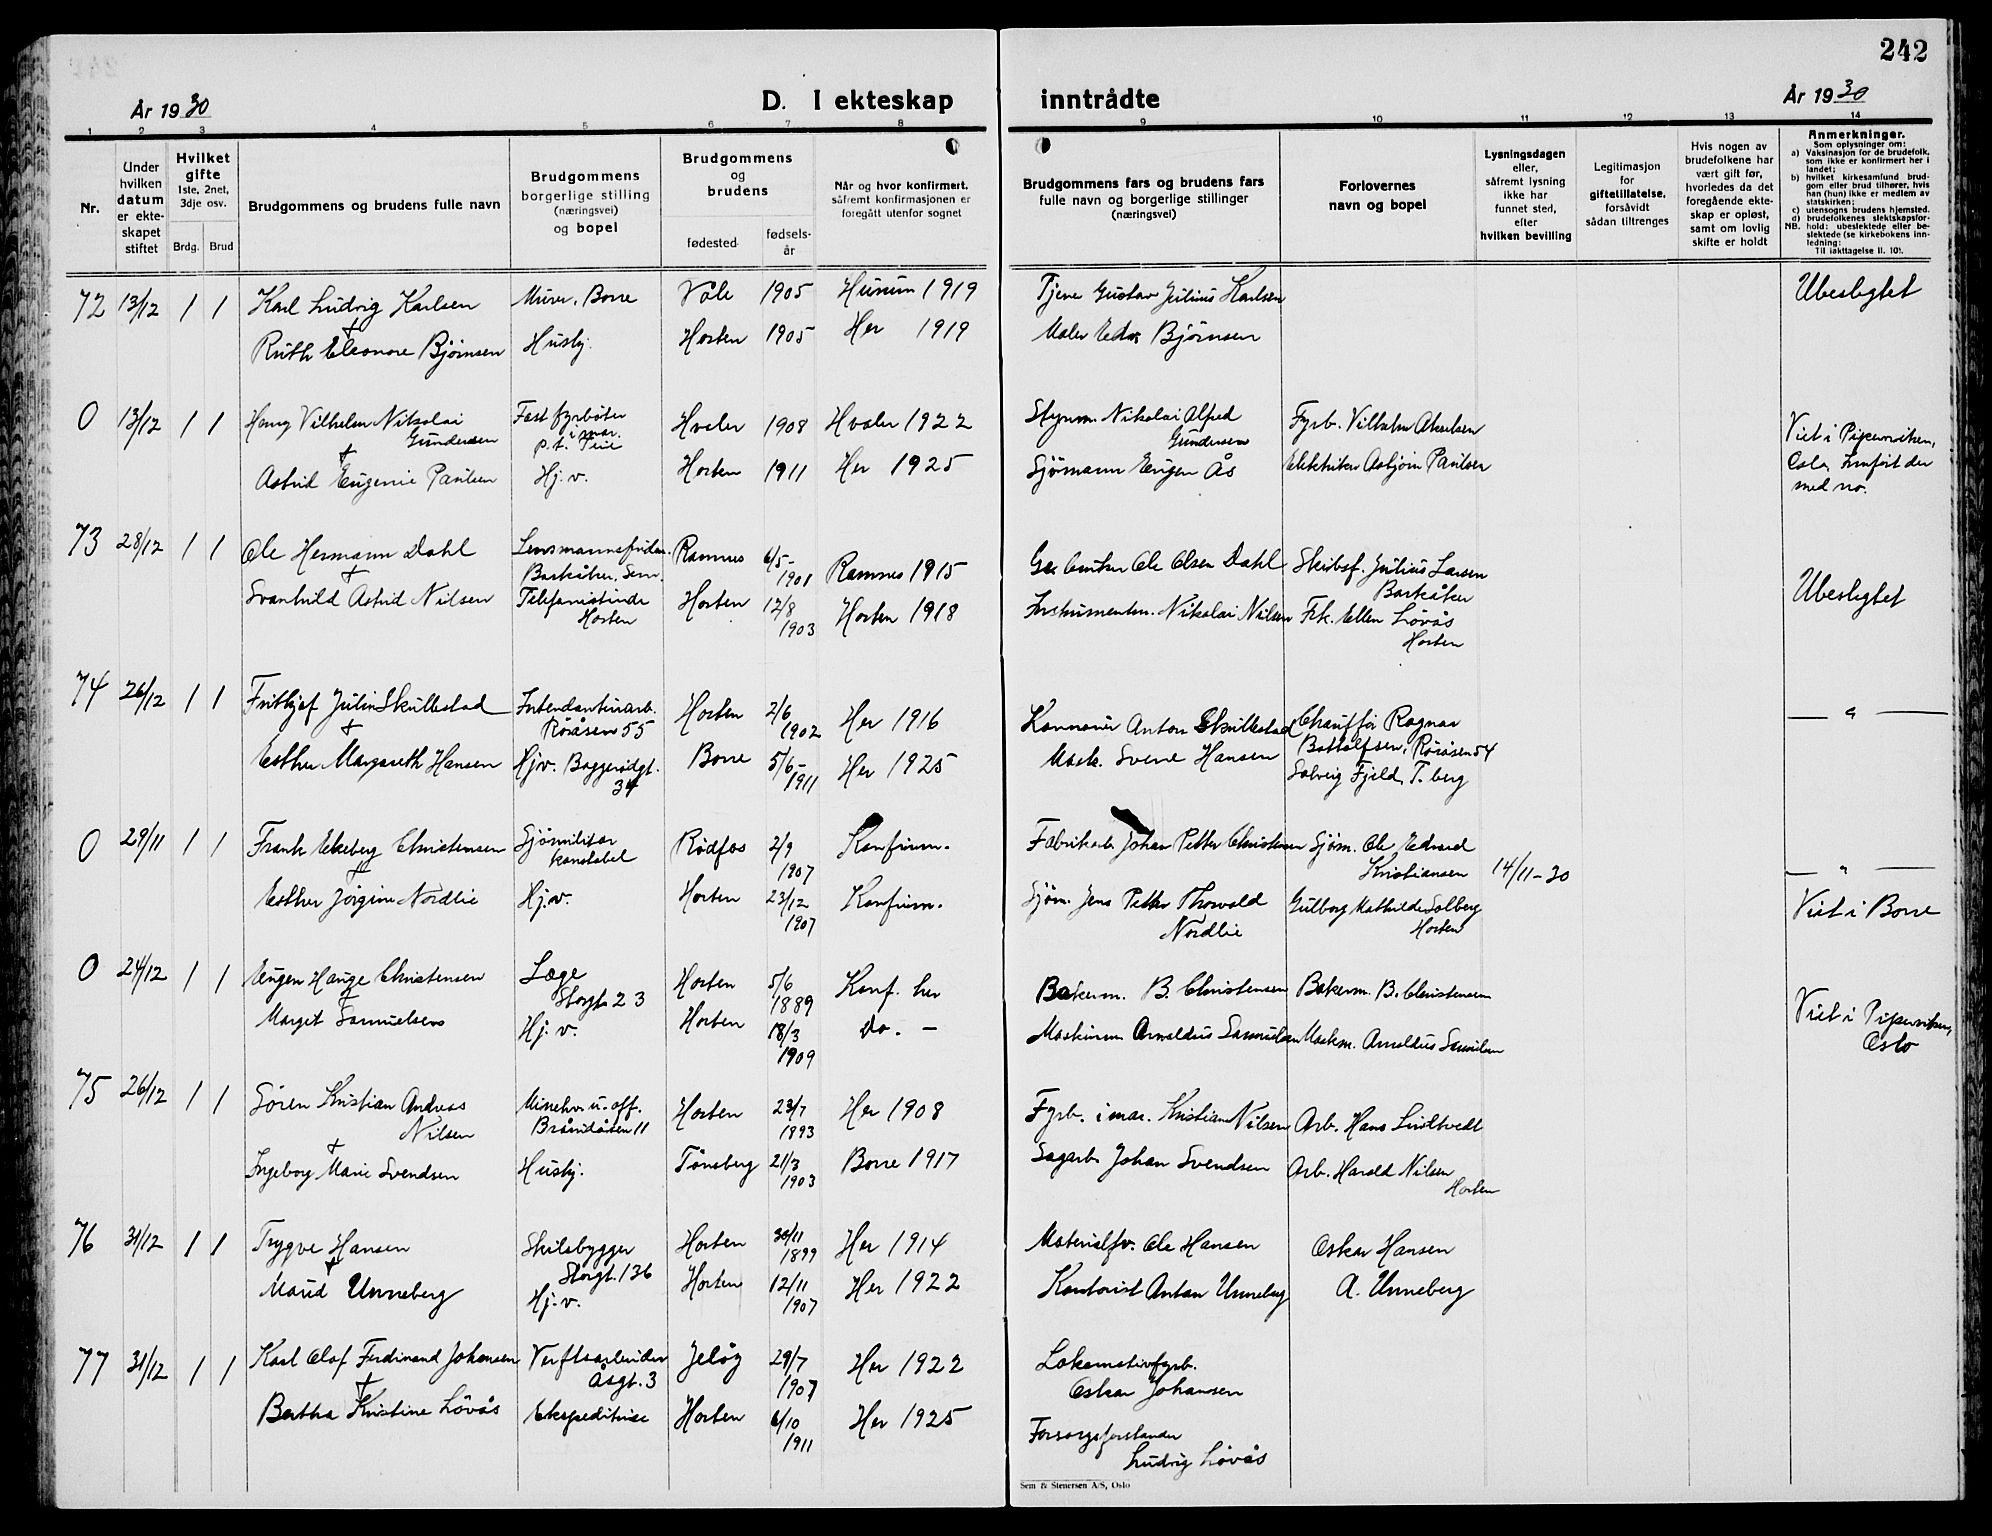 242
År 1930
D. I ekteskap
inntrådte
År 1930
1 2 3 4 5 6 7 8 9 10 11 12 13 14
Nr.
Under hvilken datum er ekteskapet stiftet
Hvilket gifte
1ste, 2net, 3dje osv.
Brdg. Brud
Brudgommens og brudens fulle navn
Brudgommens borgerlige stilling (næringsvei) og bopel
Brudgommens og brudens
fødested
fødselsår
Når og hvor konfirmert, såfremt konfirmasjonen er foregått utenfor sognet
Brudgommens fars og brudens fars fulle navn og borgerlige stillinger (næringsvei)
Forlovernes navn og bopel
Lysningsdagen eller, såfremt lysning ikke har funnet sted, efter hvilken bevilling
Legitimasjon for giftetillatelse, forsåvidt sådan tiltrenges
Hvis nogen av brudefolkene har vært gift før, hvorledes da det foregående ekteskap er opløst, samt om lovlig skifte er holdt
Anmerkninger.
Som oplysninger om:
a) Vaksinasjon for de brudefolk, som ikke er konfirmert her i landet;
b) hvilket kirkesamfund brudgom eller brud tilhører, hvis han (hun) ikke er medlem av statskirken;
c) utensogns brudens hjemsted.
d) brudefolkenes slektskapsforhold: ubeslektede eller beslektede (se kirkebokens innledning:
NB.
Til iakttagelse II. 10).
72 13/12 1 1 Karl Ludvig Karlsen Murer, Borre Våle 1905 Husum 1919 Tjene Gustav Julius Karlsen Ubeslegtet
+
Ruth Eleonore Bjørnsen Husbj. Horten 1905 Her 1919 Maler Edv. Bjørnsen
0 13/12 1 1 Harry Vilhelm Nikolai Fast fyrbøter Hvaler 1908 Hvaler 1922 Styrm. Nikolai Alfred Fyrb. Vilhelm Akselsen Viet i Pipervviken,
Gundersen i mar. Gundersen
+ p.t.
Astrid Eugenie Paulsen Hj. v. Horten 1911 Her 1925 Sjømann Eugen Ås Elektriker Asbjørn Paulsen Oslo. Innført der
med no.
73 28/12 1 1 Ole Hermann Dahl Lensmannsfuldm. Ramnes 6/5-1901 Ramnes 1915 Ole Olsen Dahl Skibsf. Julius Larsen
+ Barkåker, Sem. Barkåker Ubeslegtet
Svanhild Astrid Nilsen Telefonistinde Horten 12/8 1903 Horten 1918 Instrumentm. Nikolai Nilsen Frk. Ellen Løvås
Horten Horten
74 26/12 1 1 Frithjof Julin Skullestad Intendanturarb. Horten 2/6 1902 Her 1916 Kanonér Anton Skullestad Chauffør Ragnar — " —
+ Røråsen 55 Bottolfsen, Røråsen 54
Esther Margareth Hansen Hjv. Baggerødgt. Borre 5/6-1911 Her 1925 Mask. Svene Hansen Solveig Fjeld, T.berg
34
0 29/11 1 1 Frank Ekeberg Christensen Sjømilitær Rødfos 2/9 1907 Konfirm. Fabrikarb. Johan Petter Christensen Sjøm. Ole Edvard 14/11-30 — " —
+ konstabel Kristiansen
Esther Jørgine Nordlie Hj.v. Horten 23/12 1907 Konfirm. Sjøm. Jens Petter Thorvald Gulborg Mathilde Solberg Viet i Borre
Nordlie Horten
0 24/12 1 1 Eugen Hauge Christensen Læge Horten 5/6 1889 Konf. her Bakerm. B. Christensen Bakerm. B. Christensen
+ Storgt. 23
Margit Samuelsen Hj. v. Horten 18/3 1909 Do. — Maskinm. Arnoldus Samuelsen Maskm. Arnoldus Samuelsen Viet i Piperviken,
Oslo
75 26/12 1 1 Søren Kristian Andreas Minehv. u.-off. Horten 23/7 1893 Her 1908 Fyrb. i mar. Kristian Nilsen Arb. Hans Lindtvedt
Nilsen Bråråsen 11
+
Ingeborg Marie Svendsen Husbj. Tønsberg 21/3 1903 Borre 1917 Sagarb. Johan Svendsen Arb. Harald Nilsen
Horten
76 31/12 1 1 Trygve Hansen Skibsbygger Horten 30/11 1899 Her 1914 Materialfv. Ole Hansen Oskar Hansen
+ Storgt. 136
Maud Unneberg Hj. v. Horten 12/11 1907 Her 1922 Kontorist Anton Unneberg A. Unneberg
77 31/12 1 1 Karl Olaf Ferdinand Johansen Verftsarbeider Jeløy 29/7 1907 Her 1922 Lokomotivfyrb.
+ Åsgt. 3 Oskar Johansen
Bertha Kristine Løvås Ekspeditrise Horten 6/10 1911 Her 1925 Forsorgsforstander
Ludvig Løvås
Sem & Stenersen A/S, Oslo